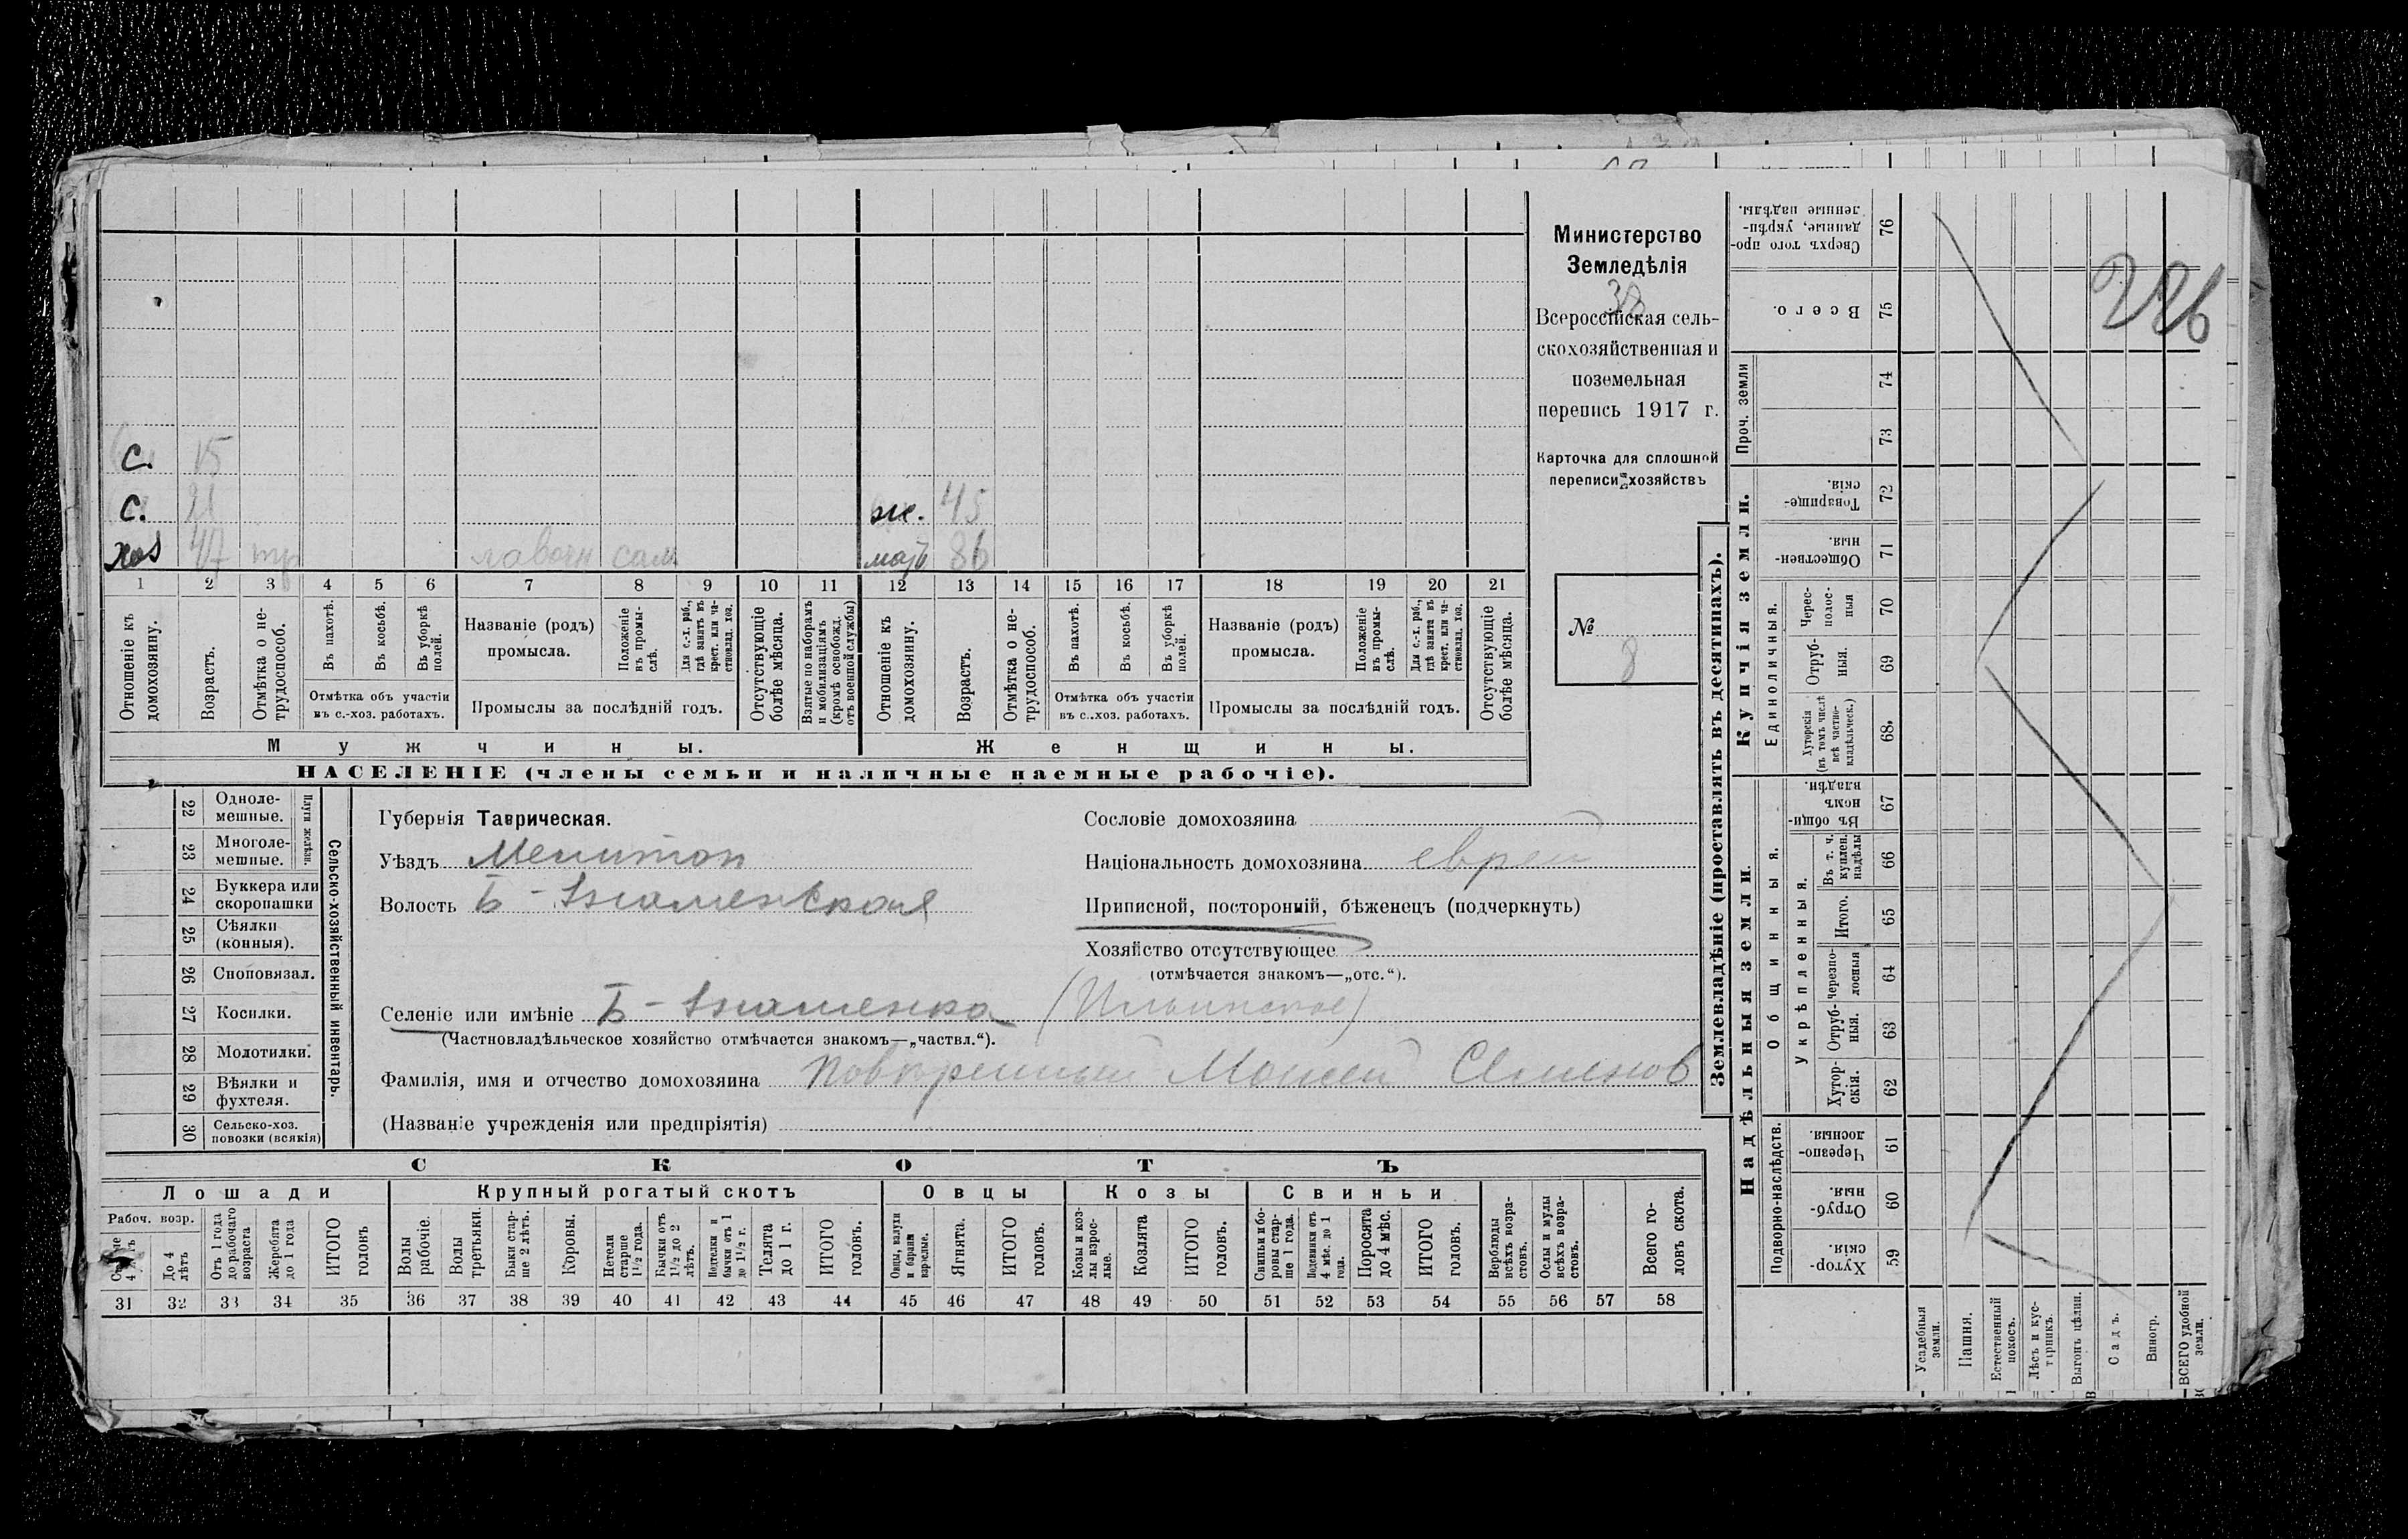 С. 15
С. 21
ж. 45
хоз 47 тр лавочн сам
мать 86
1 2 3 4 5 6 7 8 9 10 11 12 13 14 15 16 17 18 19 20 21
Отношеніе къ домохозяину.
Возрастъ.
Отмѣтка о нетрудоспособ.
Въ пахотѣ.
Въ косьбѣ.
Въ уборкѣ полей.
Отмѣтка объ участіи
въ с.-хоз. работахъ.
Названіе (родъ)
промысла.
Положеніе въ промыслѣ.
Для с.-х. раб., гдѣ занятъ въ крест. или частновлад. хоз.
Промыслы за послѣдній годъ.
Отсутствующіе болѣе мѣсяца.
Взятые по наборамъ и мобилизаціямъ (кромѣ освобожд. отъ военной службы)
Отношеніе къ домохозяину.
Возрастъ.
Отмѣтка о нетрудоспособ.
Въ пахотѣ.
Въ косьбѣ.
Въ уборкѣ полей.
Отмѣтка объ участіи
въ с..хоз. работахъ.
Названіе (родъ)
промысла.
Положеніе въ промыслѣ.
Для с.-х. раб., гдѣ занята въ крест. или частновлад. хоз.
Промыслы за послѣдній годъ.
Отсутствующіе болѣе мѣсяца.
Мужчины.
Женщины.
НАСЕЛЕНІЕ (члены семьи и наличные наемные рабочіе).
Министерство
Земледѣлія
38
Всероссійская сель-
скохозяйственная и
поземельная
перепись 1917 г.
Карточка для сплошной
переписи хозяйствъ
№
8
22 Однолемешные.
23 Многолемешные.
Плуги желѣзн.
24 Буккера или скоропашки
25 Сѣялки (конныя).
26 Сноповязал.
27 Косилки.
28 Молотилки.
29 Вѣялки и фухтеля.
30 Сельско-хоз. повозки (всякія)
Сельско-хозяйственный инвентарь.
Губернія Таврическая.
Уѣздъ Мелитоп
Волость Б-Знаменская
Сословіе домохозяина
Національность домохозяина еврей
Приписной, посторонній, бѣженецъ (подчеркнуть)
Хозяйство отсутствующее
(отмѣчается знакомъ—„отс.“).
Селеніе или имѣніе Б-Знаменка (Ильинское)
(Частновладѣльческое хозяйство отмѣчается знакомъ—„частвл.“).
Фамилія, имя и отчество домохозяина Моисей Семенов
(Названіе учрежденія или предпріятія)
СКОТЪ
Лошади
Крупный рогатый скотъ
Овцы
Козы
Свиньи
Рабоч. возр.
До 4 лѣтъ
Отъ 1 года до рабочаго возраста
Жеребята до 1 года
ИТОГО головъ
Волы рабочіе.
Волы третьяки.
Быки старше 2 лѣтъ.
Коровы.
Нетели старше 1½ года.
Бычки отъ 1½ до 2 лѣтъ.
Подтелки и бычки отъ 1 до 1½ г.
Телята до 1 г.
ИТОГО головъ.
Овцы, валухи и бараны взрослые.
Ягнята.
ИТОГО головъ.
Козы и козлы взрослые.
Козлята
ИТОГО головъ.
Свиньи и боровы старше 1 года.
Подсвинки отъ 4 мѣс. до 1 года.
Поросята до 4 мѣс.
ИТОГО головъ.
Верблюды всѣхъ возрастовъ.
Ослы и мулы всѣхъ возрастовъ.
Всего головъ скота.
31 32 33 34 35 36 37 38 39 40 41 42 43 44 45 46 47 48 49 50 51 52 53 54 55 56 57 58
Землевладѣніе (проставлять въ десятинахъ).
Сверхъ того проданные, укрѣпленные надѣлы. 76
Всего. 75
Проч. земли
74
73
Купчія земли.
Товарищескія. 72
Общественныя. 71
Единоличныя.
Чересполосныя 70
Отрубныя. 69
Хуторскія (въ томъ числѣ всѣ частновладѣльческ.) 68.
Надѣльныя земли.
Общинныя.
Въ общинномъ владѣн. 67
Укрѣпленныя.
Въ т. ч. куплен. надѣлы 66
Итого. 65
Черезполосныя 64
Отрубныя. 63
Хуторскія. 62
Подворно-наслѣдств.
Черезполосныя. 61
Отрубныя. 60
Хуторскія. 59
286
Усадебныя земли.
Пашня.
Естественный покосъ.
Лѣсъ и кустарникъ.
Выгонъ цѣлин.
Садъ.
Виногр.
ВСЕГО удобной земли.